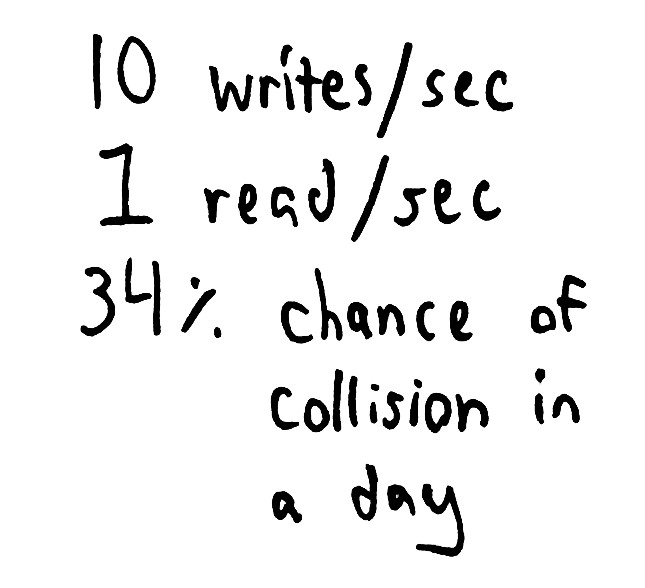 10 writes/sec
1 read/sec
34% chance of
collision in
a day